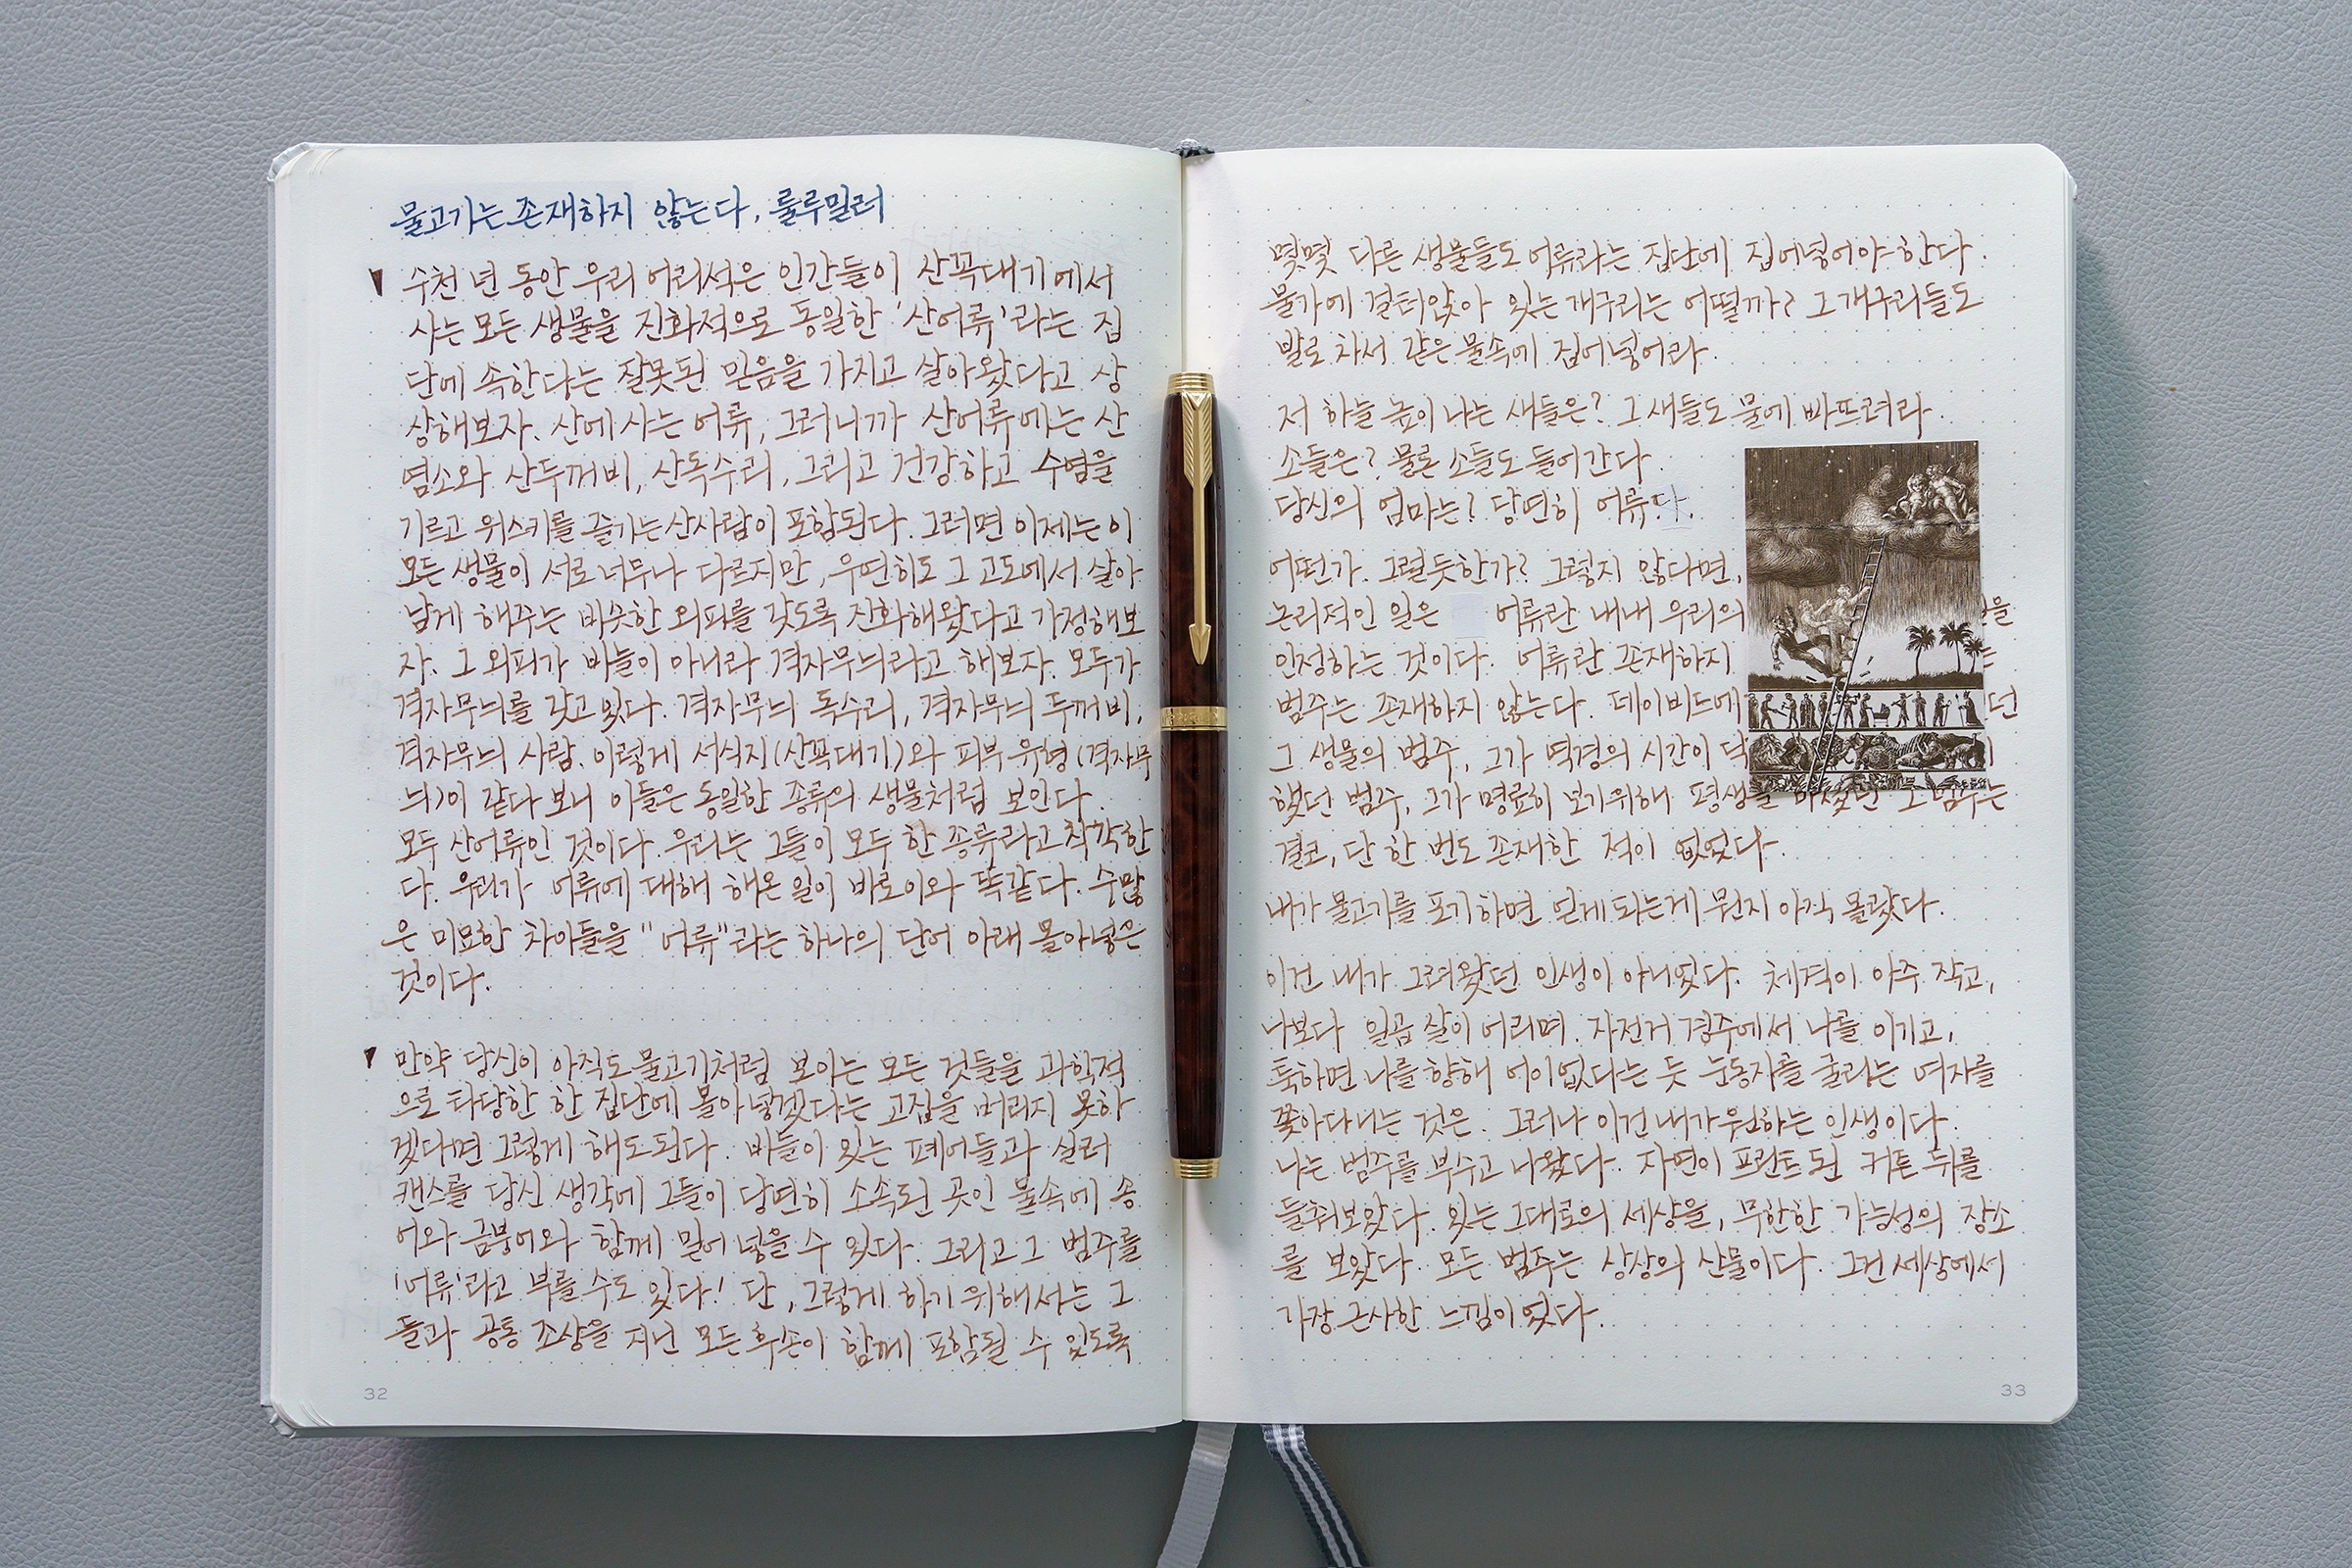 물고기는 존재하지 않는다, 룰루밀러
수천 년 동안 우리 어리석은 인간들이 산꼭대기에서
사는 모든 생물을 진화적으로 동일한 '산어류'라는 집
단에 속한다는 잘못된 믿음을 가지고 살아왔다고 상
상해보자. 산에 사는 어류, 그러니까 산어류에는 산
염소와 산두꺼비, 산독수리, 그리고 건강하고 수염을
기르고 위스키를 즐기는 산사람이 포함된다. 그러면 이제는 이
모든 생물이 서로 너무나 다르지만, 우연히도 그 고도에서 살아
남게 해주는 비슷한 외피를 갖도록 진화해왔다고 가정해보
자. 그 외피가 비늘이 아니라 격자무늬라고 해보자. 모두가
격자무늬를 갖고 있다. 격자무늬 독수리, 격자무늬 두꺼비,
격자무늬 사람. 이렇게 서식지(산꼭대기)와 피부 유형(격자무
늬)이 같다 보니 이들은 동일한 종류의 생물처럼 보인다.
모두 산어류인 것이다. 우리는 그들이 모두 한 종류라고 착각한
다. 우리가 어류에 대해 해온 일이 바로 이와 똑같다. 수많
은 미묘한 차이들을 "어류"라는 하나의 단어 아래 몰아넣은
것이다.
만약 당신이 아직도 물고기처럼 보이는 모든 것들을 과학적
으로 타당한 한 집단에 몰아넣겠다는 고집을 버리지 못하
겠다면 그렇게 해도 된다. 비들이 있는 폐어들과 실러
캔스를 당신 생각에 그들이 당연히 소속된 곳인 물속에 송
어와 금붕어와 함께 밀어 넣을 수 있다. 그리고 그 범주를
'어류'라고 부를 수도 있다! 단, 그렇게 하기 위해서는 그
들과 공통 조상을 지닌 모든 후손이 함께 포함될 수 있도록
32
몇몇 다른 생물들도 어류라는 집단에 집어넣어야 한다.
물가에 걸터앉아 있는 개구리는 어떨까? 그 개구리들도
발로 차서 같은 물속에 집어넣어라.
저 하늘 높이 나는 새들은? 그 새들도 물에 빠뜨려라.
소들은? 물론 소들도 들어간다.
당신의 엄마는? 당연히 어류다.
어떤가. 그럴듯한가? 그렇지 않다면,
논리적인 일은 어류란 내내 우리의 을
인정하는 것이다. 어류란 존재하지
범주는 존재하지 않는다. 데이비드에 던
그 생물의 범주, 그가 역경의 시간이 닥
했던 범주, 그가 명료히 보기위해 평생을 바쳤던 그 범주는
결코, 단 한 번도 존재한 적이 없었다.
내가 물고기를 포기하면 얻게 되는게 뭔지 아직 몰랐다.
이건 내가 그려왔던 인생이 아니었다. 체격이 아주 작고,
나보다 일곱 살이 어리며. 자전거 경주에서 나를 이기고,
툭하면 나를 향해 어이없다는 듯 눈동자를 굴리는 여자를
쫓아다니는 것은. 그러나 이건 내가 원하는 인생이다.
나는 범주를 부수고 나왔다. 자연이 프린트 된 커튼 뒤를
들춰보았다. 있는 그대로의 세상을, 무한한 가능성의 장소
를 보았다. 모든 범주는 상상의 산물이다. 그건 세상에서
가장 근사한 느낌이었다.
33